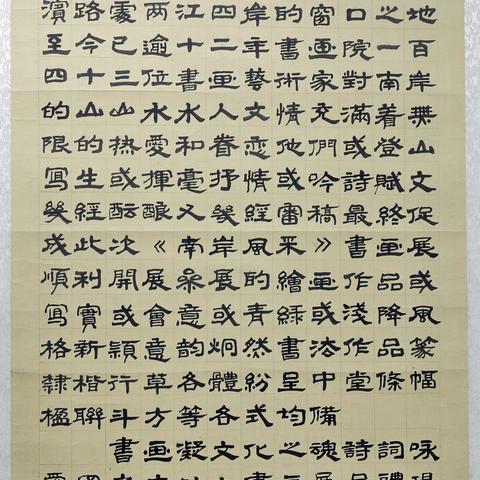 濱路處两江四岸的窗口之地
至今已逾十二年書画院一百
四十三位書画藝術家對南岸
的山山水水人文情充滿着無
限的热愛和眷恋他們或登山
寫生或揮毫抒情或吟詩賦文
幾經酝釀又幾經審稿最終促
成此次《南岸風采》書画展
順利開展參展的繪画作品或
寫實或會意或青緑或淺降風
格新穎意韵炯然書法作品篆
隸楷行草各體紛呈中堂條幅
楹聯斗方等各式均備
書画凝文化之魂詩詞咏